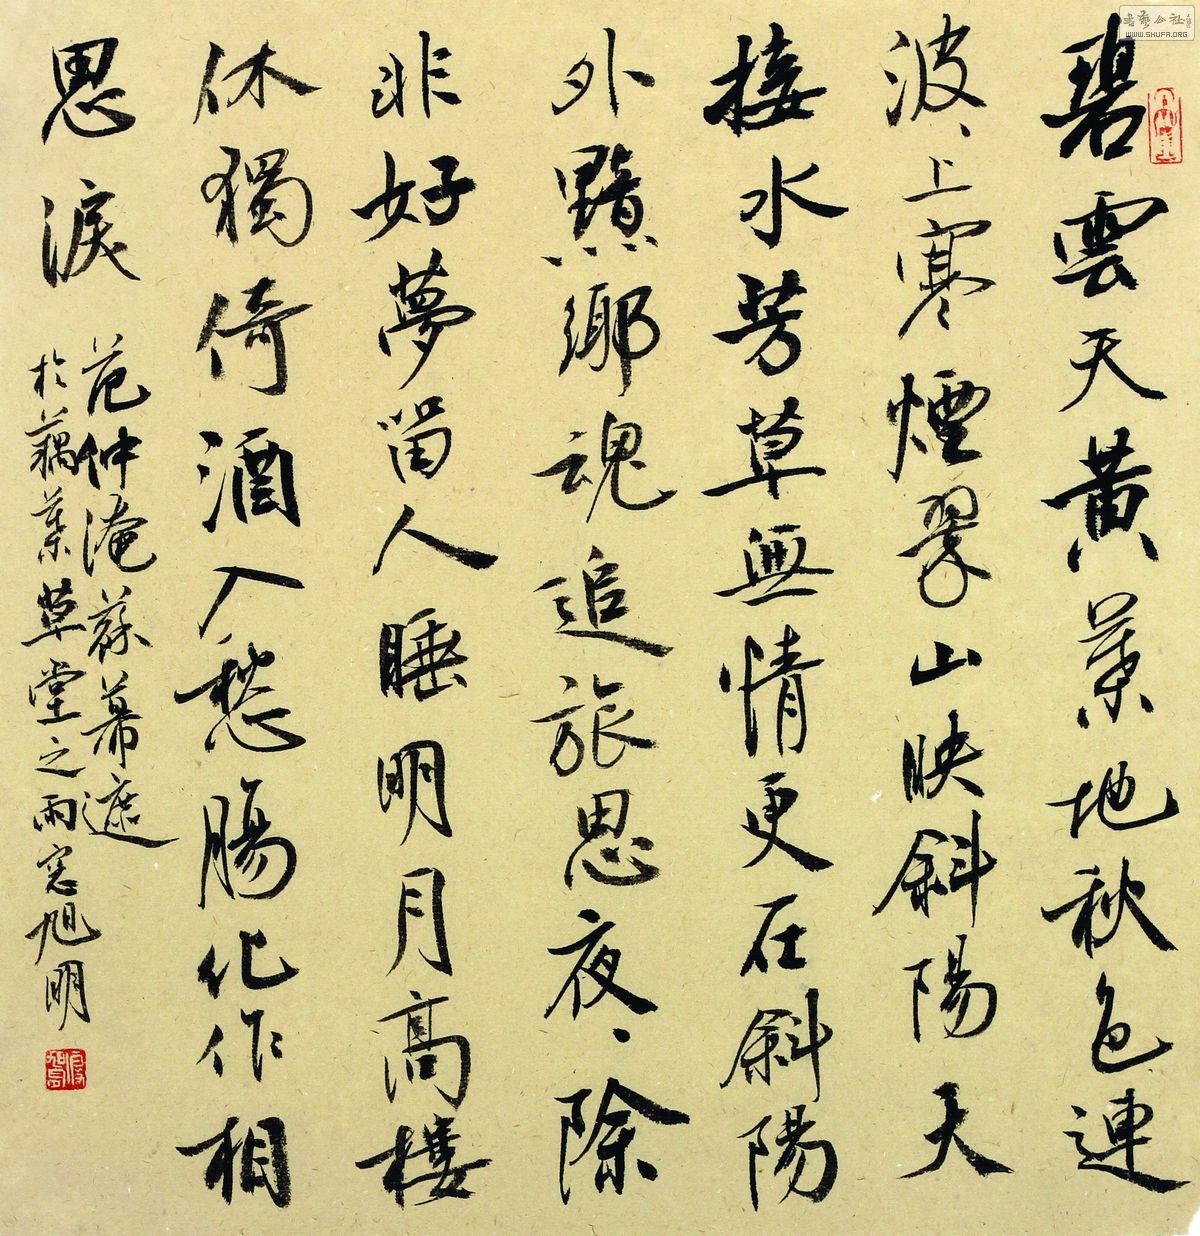 碧雲天黃葉地秋色連
波、上寒煙翠山映斜陽天
接水芳草無情更在斜陽
外黯鄉魂追旅思夜、除
非好夢留人睡明月高樓
休獨倚酒入愁腸化作相
思淚
范仲淹蘇幕遮
於藕葉草堂之雨窓旭明
書藝公社
WWW.SHUFA.ORG